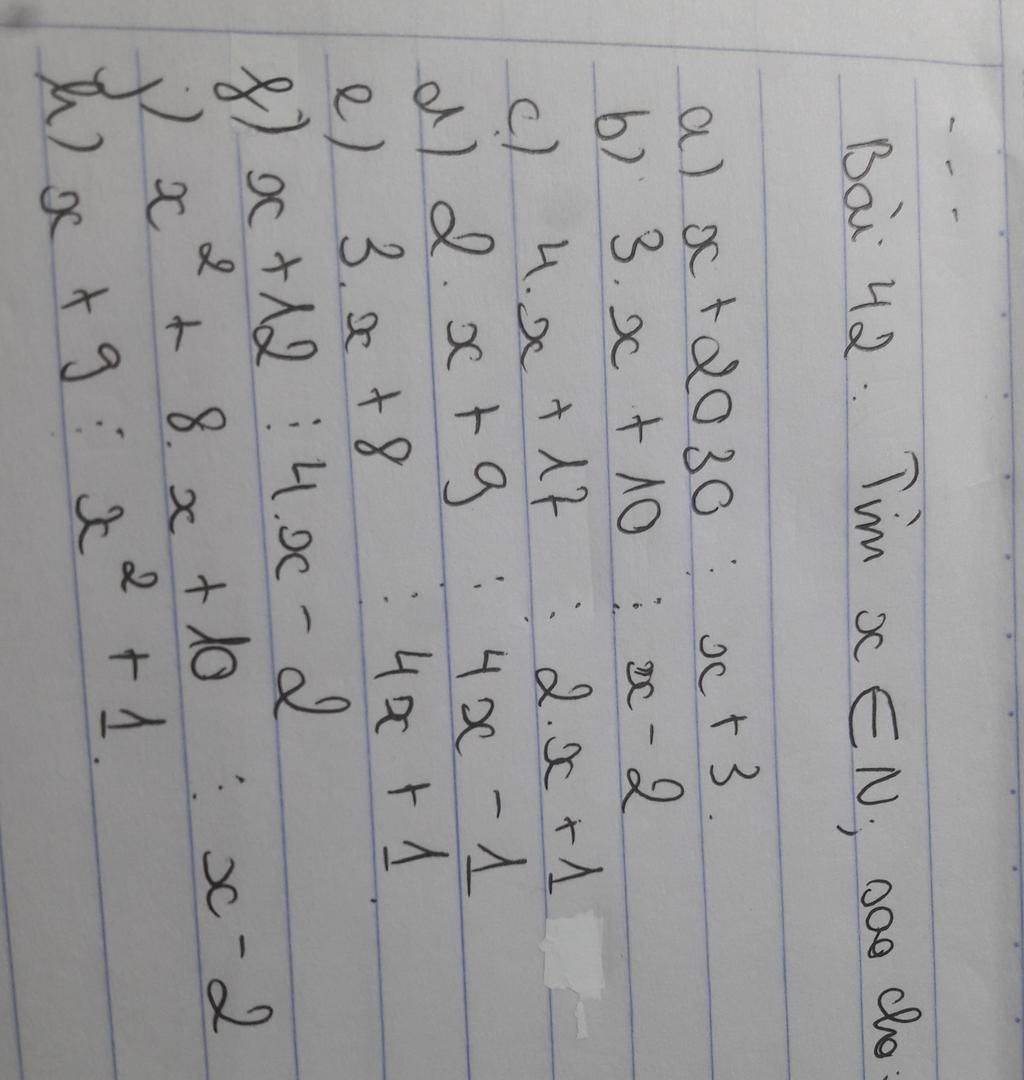 Bài 42. Tìm x ∈ N, sao cho:
a) x + 2030 ⋮ x + 3.
b) 3.x + 10 ⋮ x - 2
c) 4.x + 17 ⋮ 2.x + 1
d) 2.x + 9 ⋮ 4x - 1
e) 3.x + 8 ⋮ 4x + 1
g) x + 12 ⋮ 4.x - 2
i) x² + 8.x + 10 ⋮ x - 2
h) x + 9 ⋮ x² + 1.